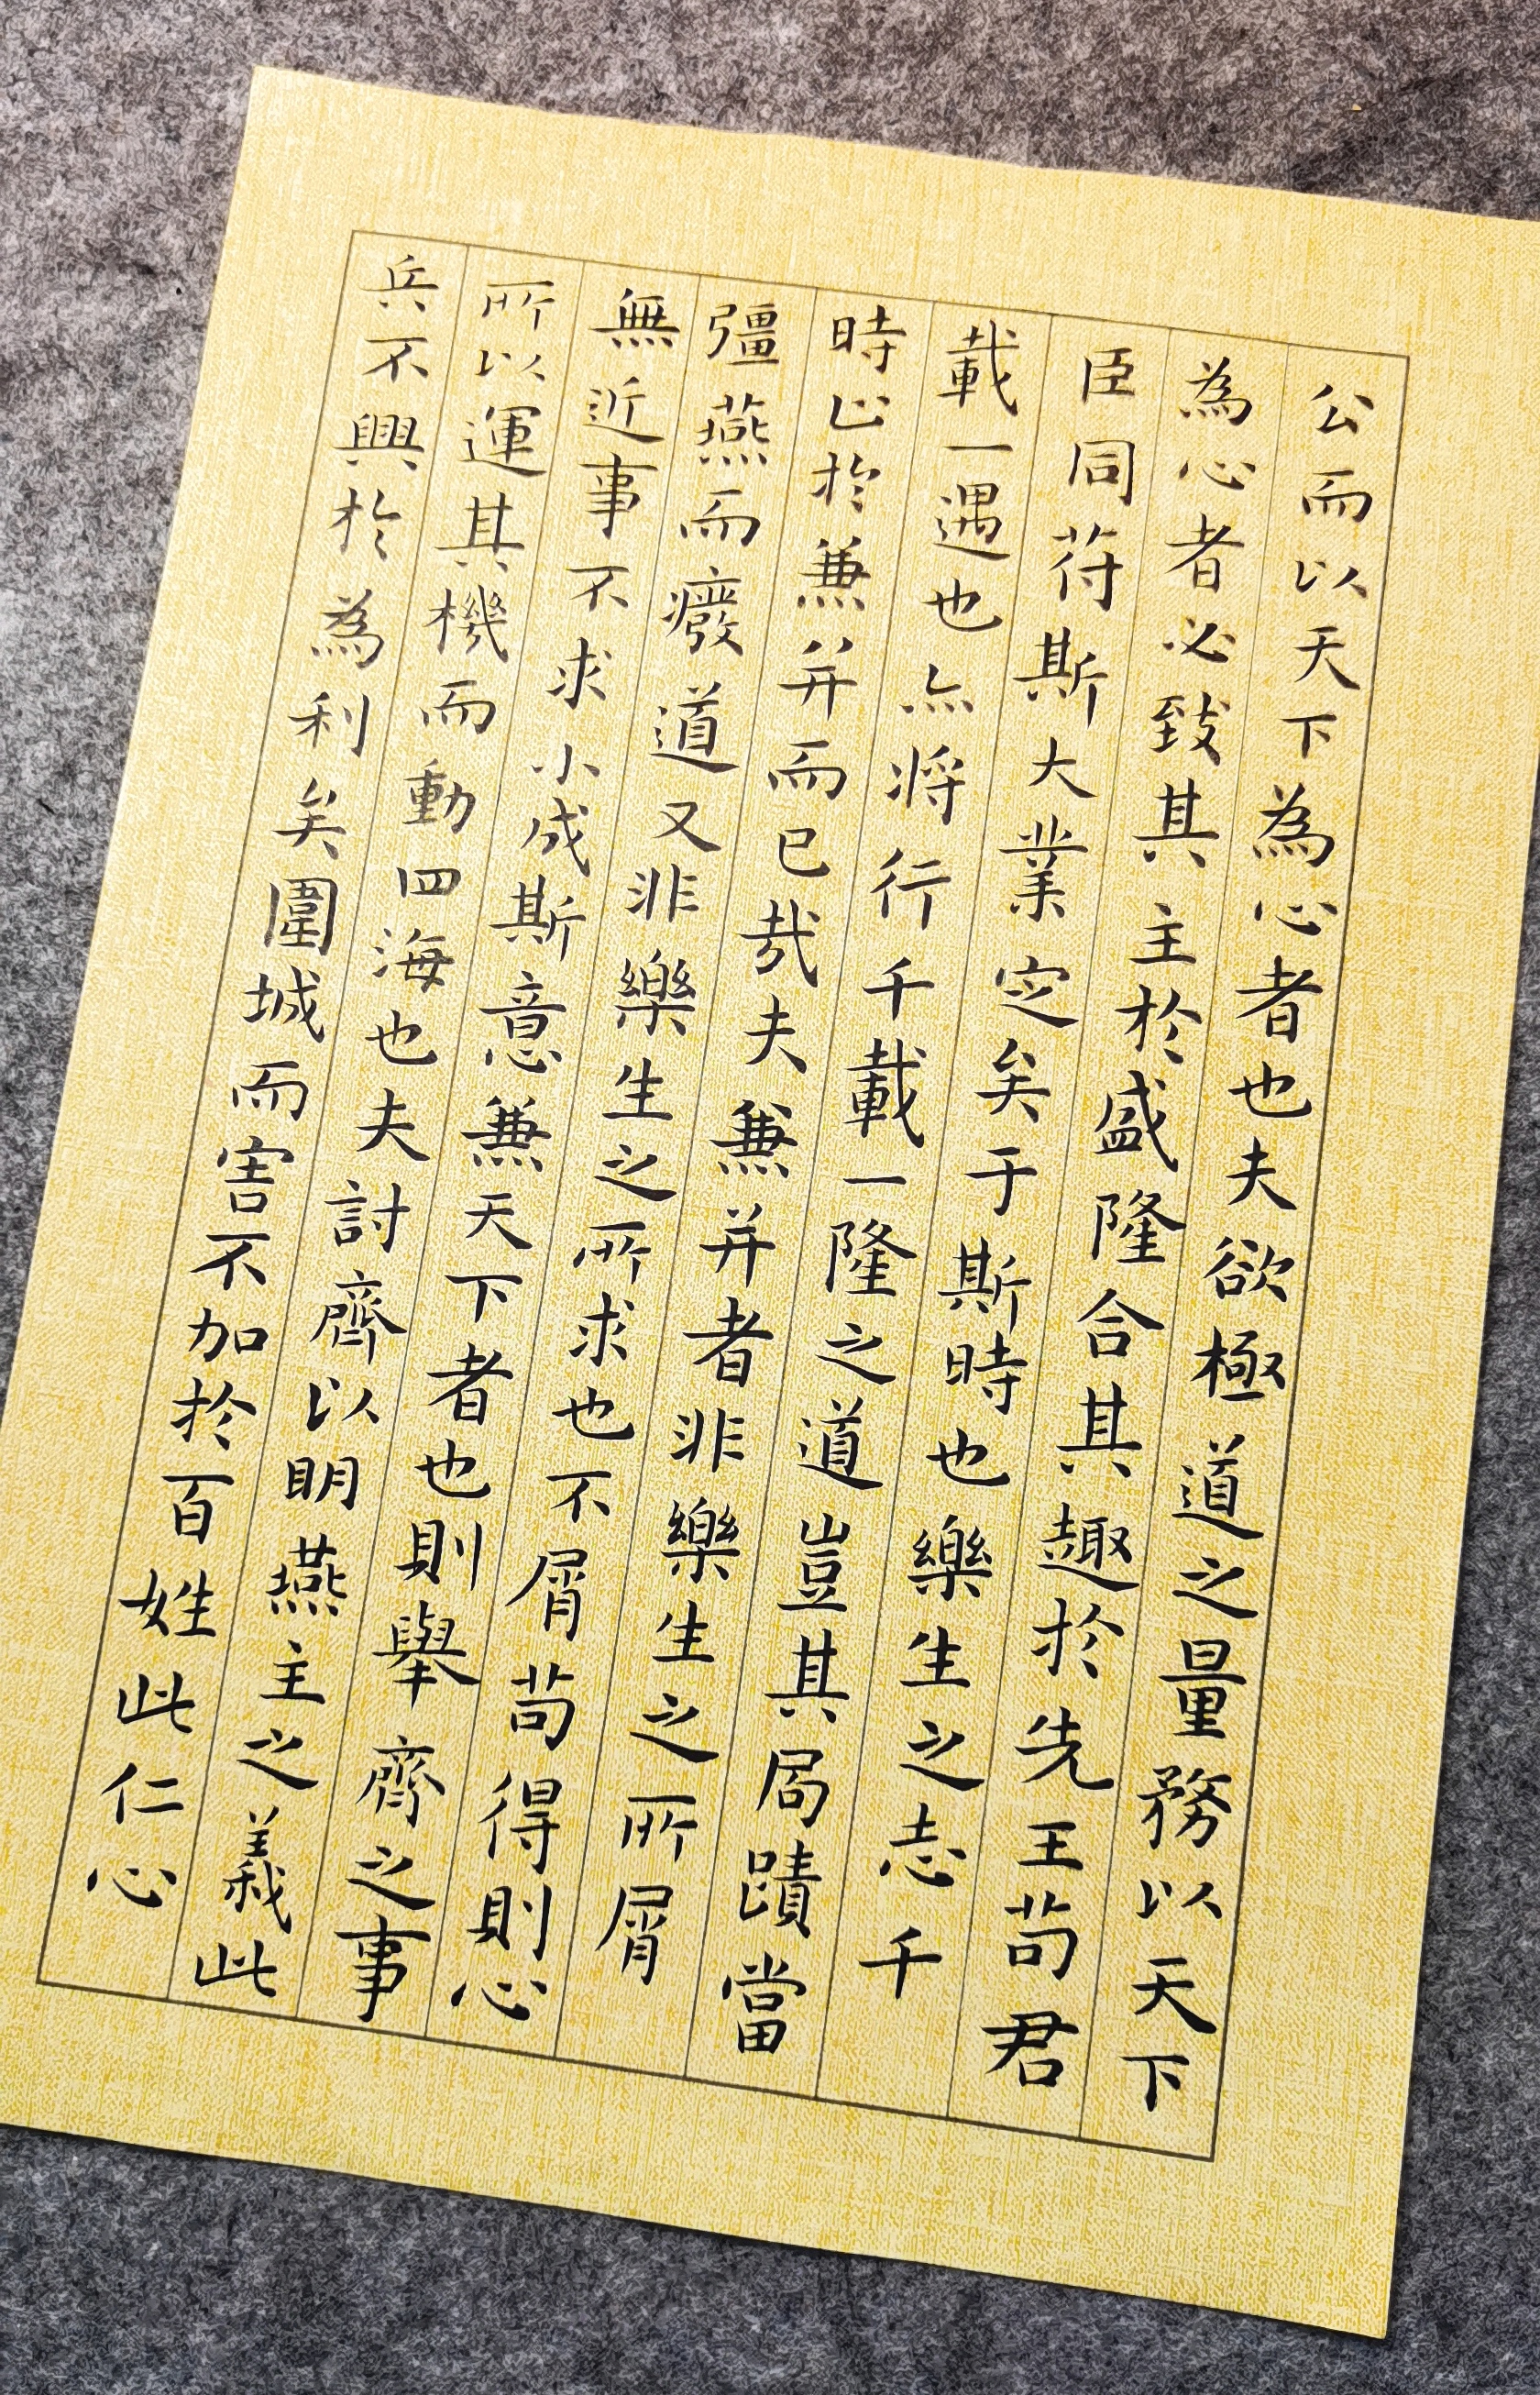 公而以天下為心者也夫欲極道之量務以天下
為心者必致其主於盛隆合其趣於先王苟君
臣同苻斯大業定矣于斯時也樂生之志千
載一遇也亦将行千載一隆之道豈其局蹟當
時止於兼并而已哉夫兼并者非樂生之所屑
彊燕而癈道又非樂生之所求也不屑苟得則心
無近事不求小成斯意兼天下者也則舉齊之事
所以運其機而動四海也夫討齊以明燕主之義此
兵不興於為利矣圍城而害不加於百姓此仁心